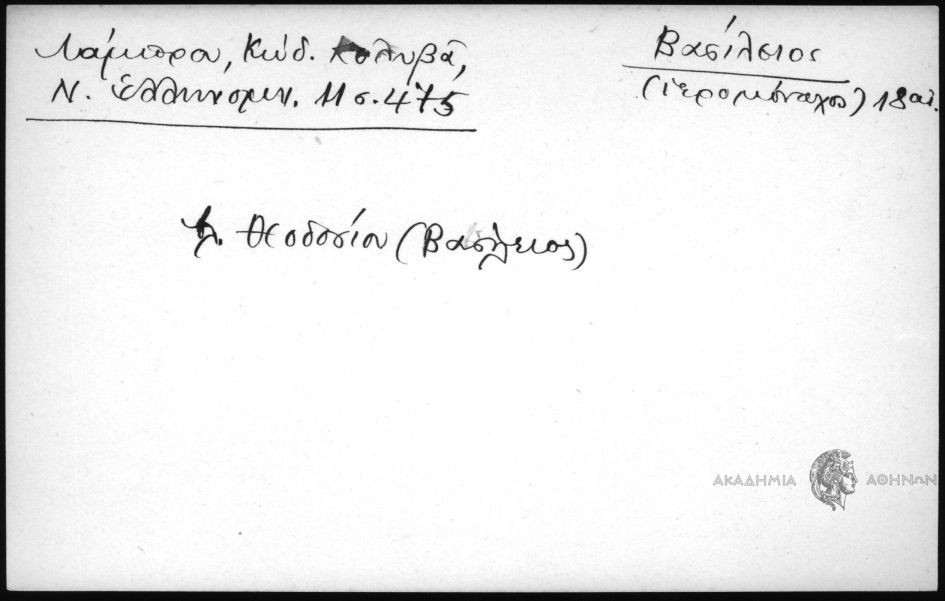 Λάμπρου, Κώδ. Κολυβᾶ,
Ν. Ἑλληνομν. 11 σ. 475
Βασίλειος
(ἱερομόναχος) 18 αἰ.
βλ. Θεοδοσίου (Βασίλειος)
ΑΚΑΔΗΜΙΑ ΑΘΗΝΩΝ